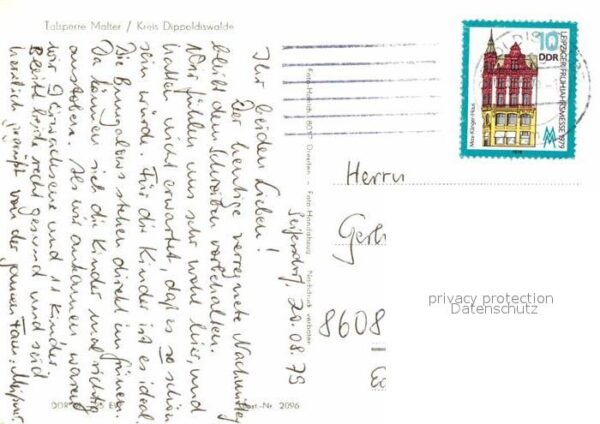 Talsperre Malter / Kreis Dippoldiswalde
Seifersdorf, 20.08.79
Ihr beiden Lieben!
Der heutige verregnete Nachmittag
bleibt dem Schreiben vorbehalten.
Wir fühlen uns sehr wohl hier, und
hatten nicht erwartet, daß es so schön
sein würde. Für die Kinder ist es ideal.
Die Bungalows stehen direkt im Grünen.
Da können sich die Kinder mal richtig
austoben. Als wir ankamen waren
wir 9 Erwachsene und 11 Kinder.
Bleibt beide recht gesund und seid
herzlich gegrüßt von der ganzen Fam.
Foto-Handel Dresden - Foto-Handabzug Nachdruck verboten
Best.-Nr. 2096
DDR
10
DDR
LEIPZIGER FRÜHJAHRSMESSE 1979
Max-Klinger-Haus
MM
Herrn
8608
privacy protection
Datenschutz